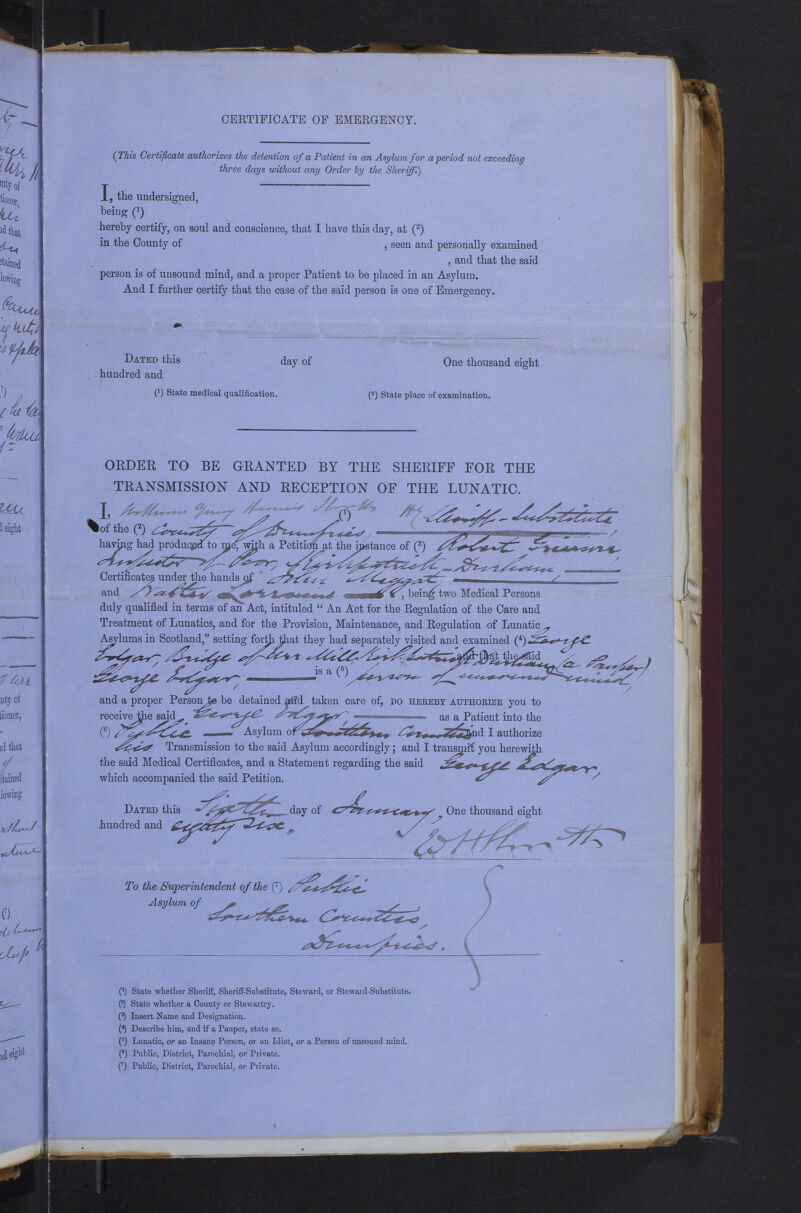 CERTIFICATE OF EMERGENCY.
(This Certificate authorizes the detention of a Patient in an Asylum for a period not exceeding
three days without any Order by the Sheriff.)
I, the undersigned,
being (1)
hereby certify, on soul and conscience, that I have this day, at (2)
in the County of , seen and personally examined
, and that the said
person is of unsound mind, and a proper Patient to be placed in an Asylum.
And I further certify that the case of the said person is one of Emergency.
DATED this day of One thousand eight
hundred and
(1) State medical qualification. (2) State place of examination.
ORDER TO BE GRANTED BY THE SHERIFF FOR THE
TRANSMISSION AND RECEPTION OF THE LUNATIC.
I, (1) Sheriff-Substitute
of the (2) County of Dumfries,
having had produced to me, with a Petition at the instance of (3) Robert Grierson,
Inspector of Poor, Kirkpatrick-Durham,
Certificates under the hands of John
and Walter Lorraine , being two Medical Persons
duly qualified in terms of an Act, intituled " An Act for the Regulation of the Care and
Treatment of Lunatics, and for the Provision, Maintenance, and Regulation of Lunatic
Asylums in Scotland," setting forth that they had separately visited and examined (4) George
Edgar, Bridge of Urr Mill Kirkpatrick Durham (a Pauper) and that the said
George Edgar, is a (5) person of unsound mind,
and a proper Person to be detained and taken care of, DO HEREBY AUTHORIZE you to
receive the said George Edgar, as a Patient into the
(6) Public Asylum of Southern Counties and I authorize
his Transmission to the said Asylum accordingly; and I transmit you herewith
the said Medical Certificates, and a Statement regarding the said George Edgar,
which accompanied the said Petition.
DATED this Sixth day of January, One thousand eight
hundred and eighty six.
To the Superintendent of the (7) Public
Asylum of
Southern Counties,
Dumfries.
(1) State whether Sheriff, Sheriff-Substitute, Steward, or Steward-Substitute.
(2) State whether a County or Stewartry.
(3) Insert Name and Designation.
(4) Describe him, and if a Pauper, state so.
(5) Lunatic, or an Insane Person, or an Idiot, or a Person of unsound mind.
(6) Public, District, Parochial, or Private.
(7) Public, District, Parochial, or Private.